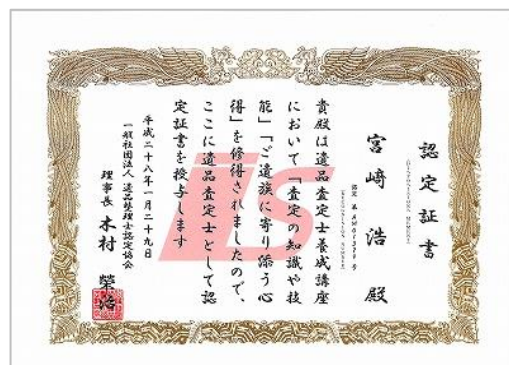 認定証書
宮﨑 浩 殿
貴殿は遺品査定士養成講座
において「査定の知識や技
能」「ご遺族に寄り添う心
得」を修得されましたので、
ここに遺品査定士として認
定証書を授与します
平成二十八年一月二十九日
一般社団法人 遺品整理士認定協会
理事長 木村 榮治